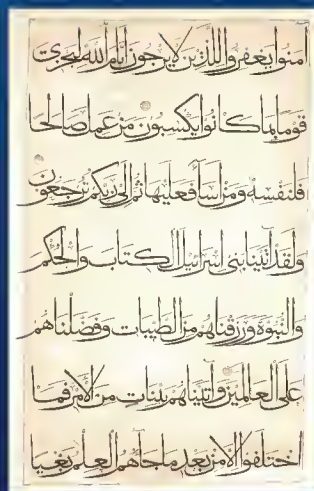 آمنوا يغفروا للذين لا يرجون أيام الله ليجزي
قوما بما كانوا يكسبون من عمل صالحا
فلنفسه ومن أسا فعليها ثم إلى ربكم ترجعون
ولقد آتينا بني إسرائيل الكتاب والحكم
والنبوة ورزقناهم من الطيبات وفضلناهم
على العالمين وآتيناهم بينات من الأمر فما
اختلفوا إلا من بعد ما جاهم العلم بغيا